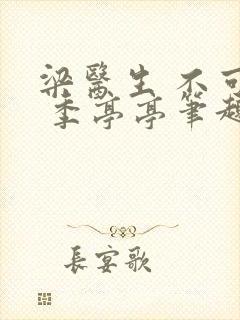 梁醫生 不可
季亭亭筆趣
長宴歌